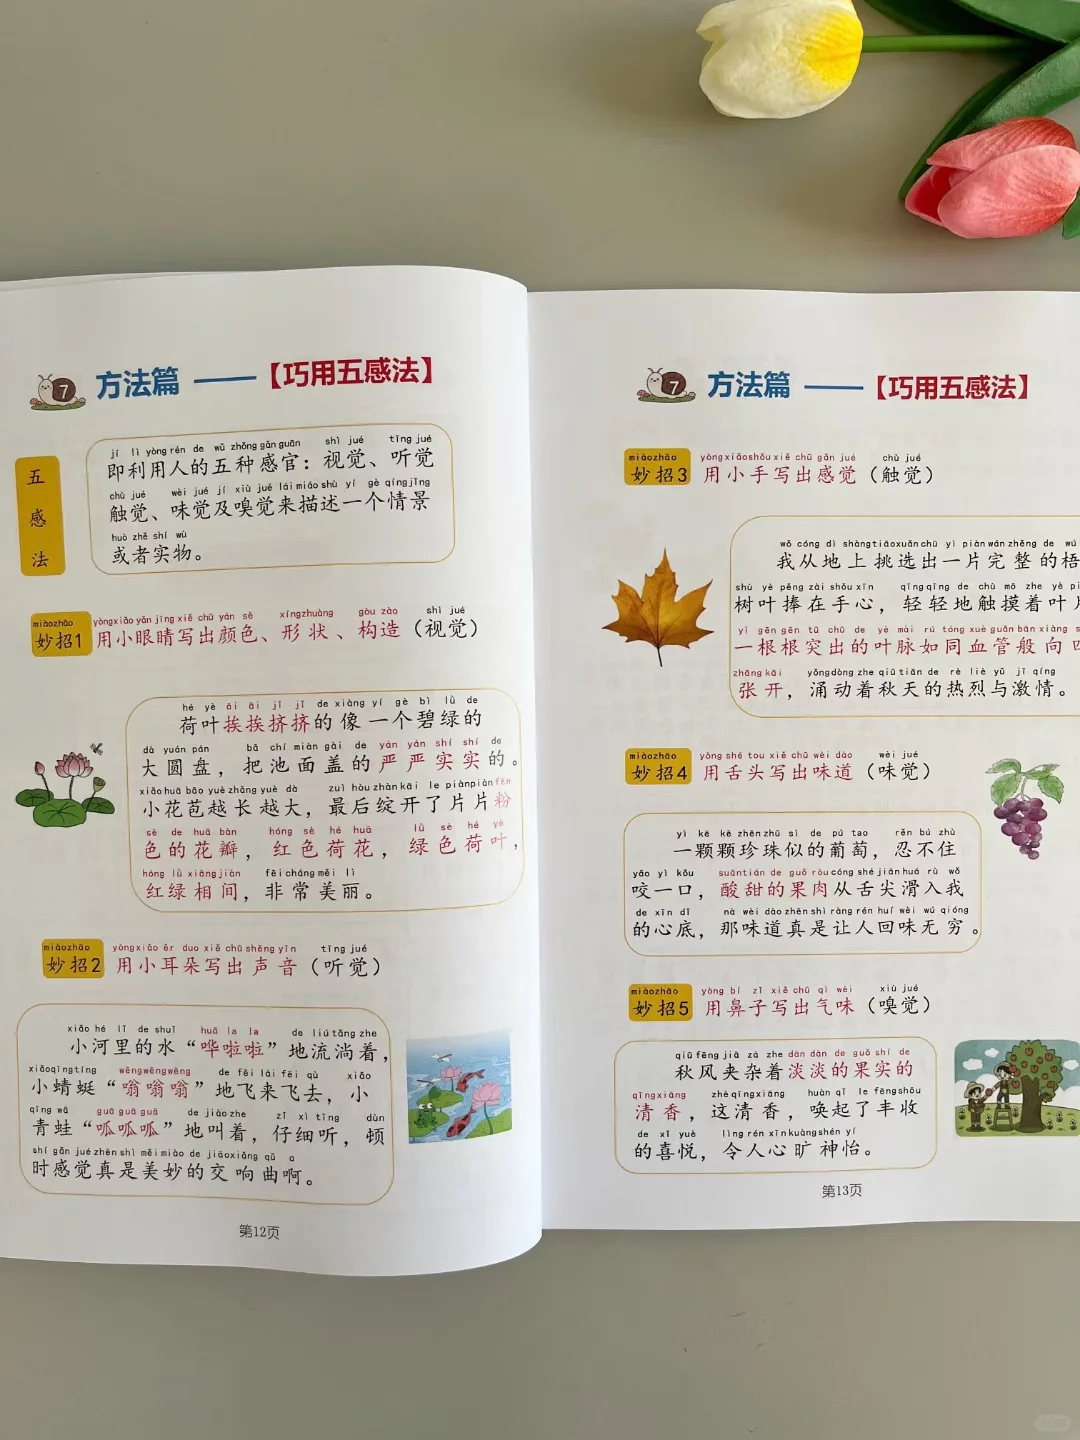 7 方法篇 —— 【巧用五感法】
五感法
jí lì yòng rén de wǔ zhǒng gǎn guān shì jué tīng jué
即利用人的五种感官：视觉、听觉
chù jué wèi jué jí xiù jué lái miáo shù yí gè qíng jǐng
触觉、味觉及嗅觉来描述一个情景
huò zhě shí wù
或者实物。
miào zhāo yòng xiǎo yǎn jīng xiě chū yán sè xíng zhuàng gòu zào shì jué
妙招1 用小眼睛写出颜色、形状、构造（视觉）
hé yè āi āi jǐ jǐ de xiàng yí gè bì lǜ de
荷叶挨挨挤挤的像一个碧绿的
dà yuán pán bǎ chí miàn gài de yán yán shí shí de
大圆盘，把池面盖的严严实实的。
xiǎo huā bāo yuè zhǎng yuè dà zuì hòu zhàn kāi le piàn piàn fěn
小花苞越长越大，最后绽开了片片粉
sè de huā bàn hóng sè hé huā lǜ sè hé yè
色的花瓣，红色荷花，绿色荷叶，
hóng lǜ xiāng jiàn fēi cháng měi lì
红绿相间，非常美丽。
miào zhāo yòng xiǎo ěr duo xiě chū shēng yīn tīng jué
妙招2 用小耳朵写出声音（听觉）
xiǎo hé lǐ de shuǐ huā la la de liú tǎng zhe
小河里的水“哗啦啦”地流淌着，
xiǎo qīng tíng wēng wēng wēng de fēi lái fēi qù xiǎo
小蜻蜓“嗡嗡嗡”地飞来飞去，小
qīng wā guā guā guā de jiào zhe zǐ xì tīng dùn
青蛙“呱呱呱”地叫着，仔细听，顿
shí gǎn jué zhēn shì měi miào de jiāo xiǎng qǔ a
时感觉真是美妙的交响曲啊。
第12页
7 方法篇 —— 【巧用五感法】
miào zhāo yòng xiǎo shǒu xiě chū gǎn jué chù jué
妙招3 用小手写出感觉（触觉）
wǒ cóng dì shàng tiāo xuǎn chū yí piàn wán zhěng de wú
我从地上挑选出一片完整的梧
shù yè pěng zài shǒu xīn qīng qīng de chù mō zhe yè
树叶捧在手心，轻轻地触摸着叶
yì gēn gēn tū chū de yè mài rú tóng xuè guǎn bān xiàng
一根根突出的叶脉如同血管般向
zhāng kāi yǒng dòng zhe qiū tiān de rè liè yǔ jī qíng
张开，涌动着秋天的热烈与激情。
miào zhāo yòng shé tou xiě chū wèi dào wèi jué
妙招4 用舌头写出味道（味觉）
yì kē kē zhēn zhū sì de pú tao rěn bú zhù
一颗颗珍珠似的葡萄，忍不住
yǎo yì kǒu suān tián de guǒ ròu cóng shé jiān huá rù wǒ
咬一口，酸甜的果肉从舌尖滑入我
de xīn dǐ nà wèi dào zhēn shì ràng rén huí wèi wú qióng
的心底，那味道真是让人回味无穷。
miào zhāo yòng bí zǐ xiě chū qì wèi xiù jué
妙招5 用鼻子写出气味（嗅觉）
qiū fēng jiā zá zhe dàn dàn de guǒ shí de
秋风夹杂着淡淡的果实的
qīng xiāng zhè qīng xiāng huàn qǐ le fēng shōu
清香，这清香，唤起了丰收
de xǐ yuè lìng rén xīn kuàng shén yí
的喜悦，令人心旷神怡。
第13页